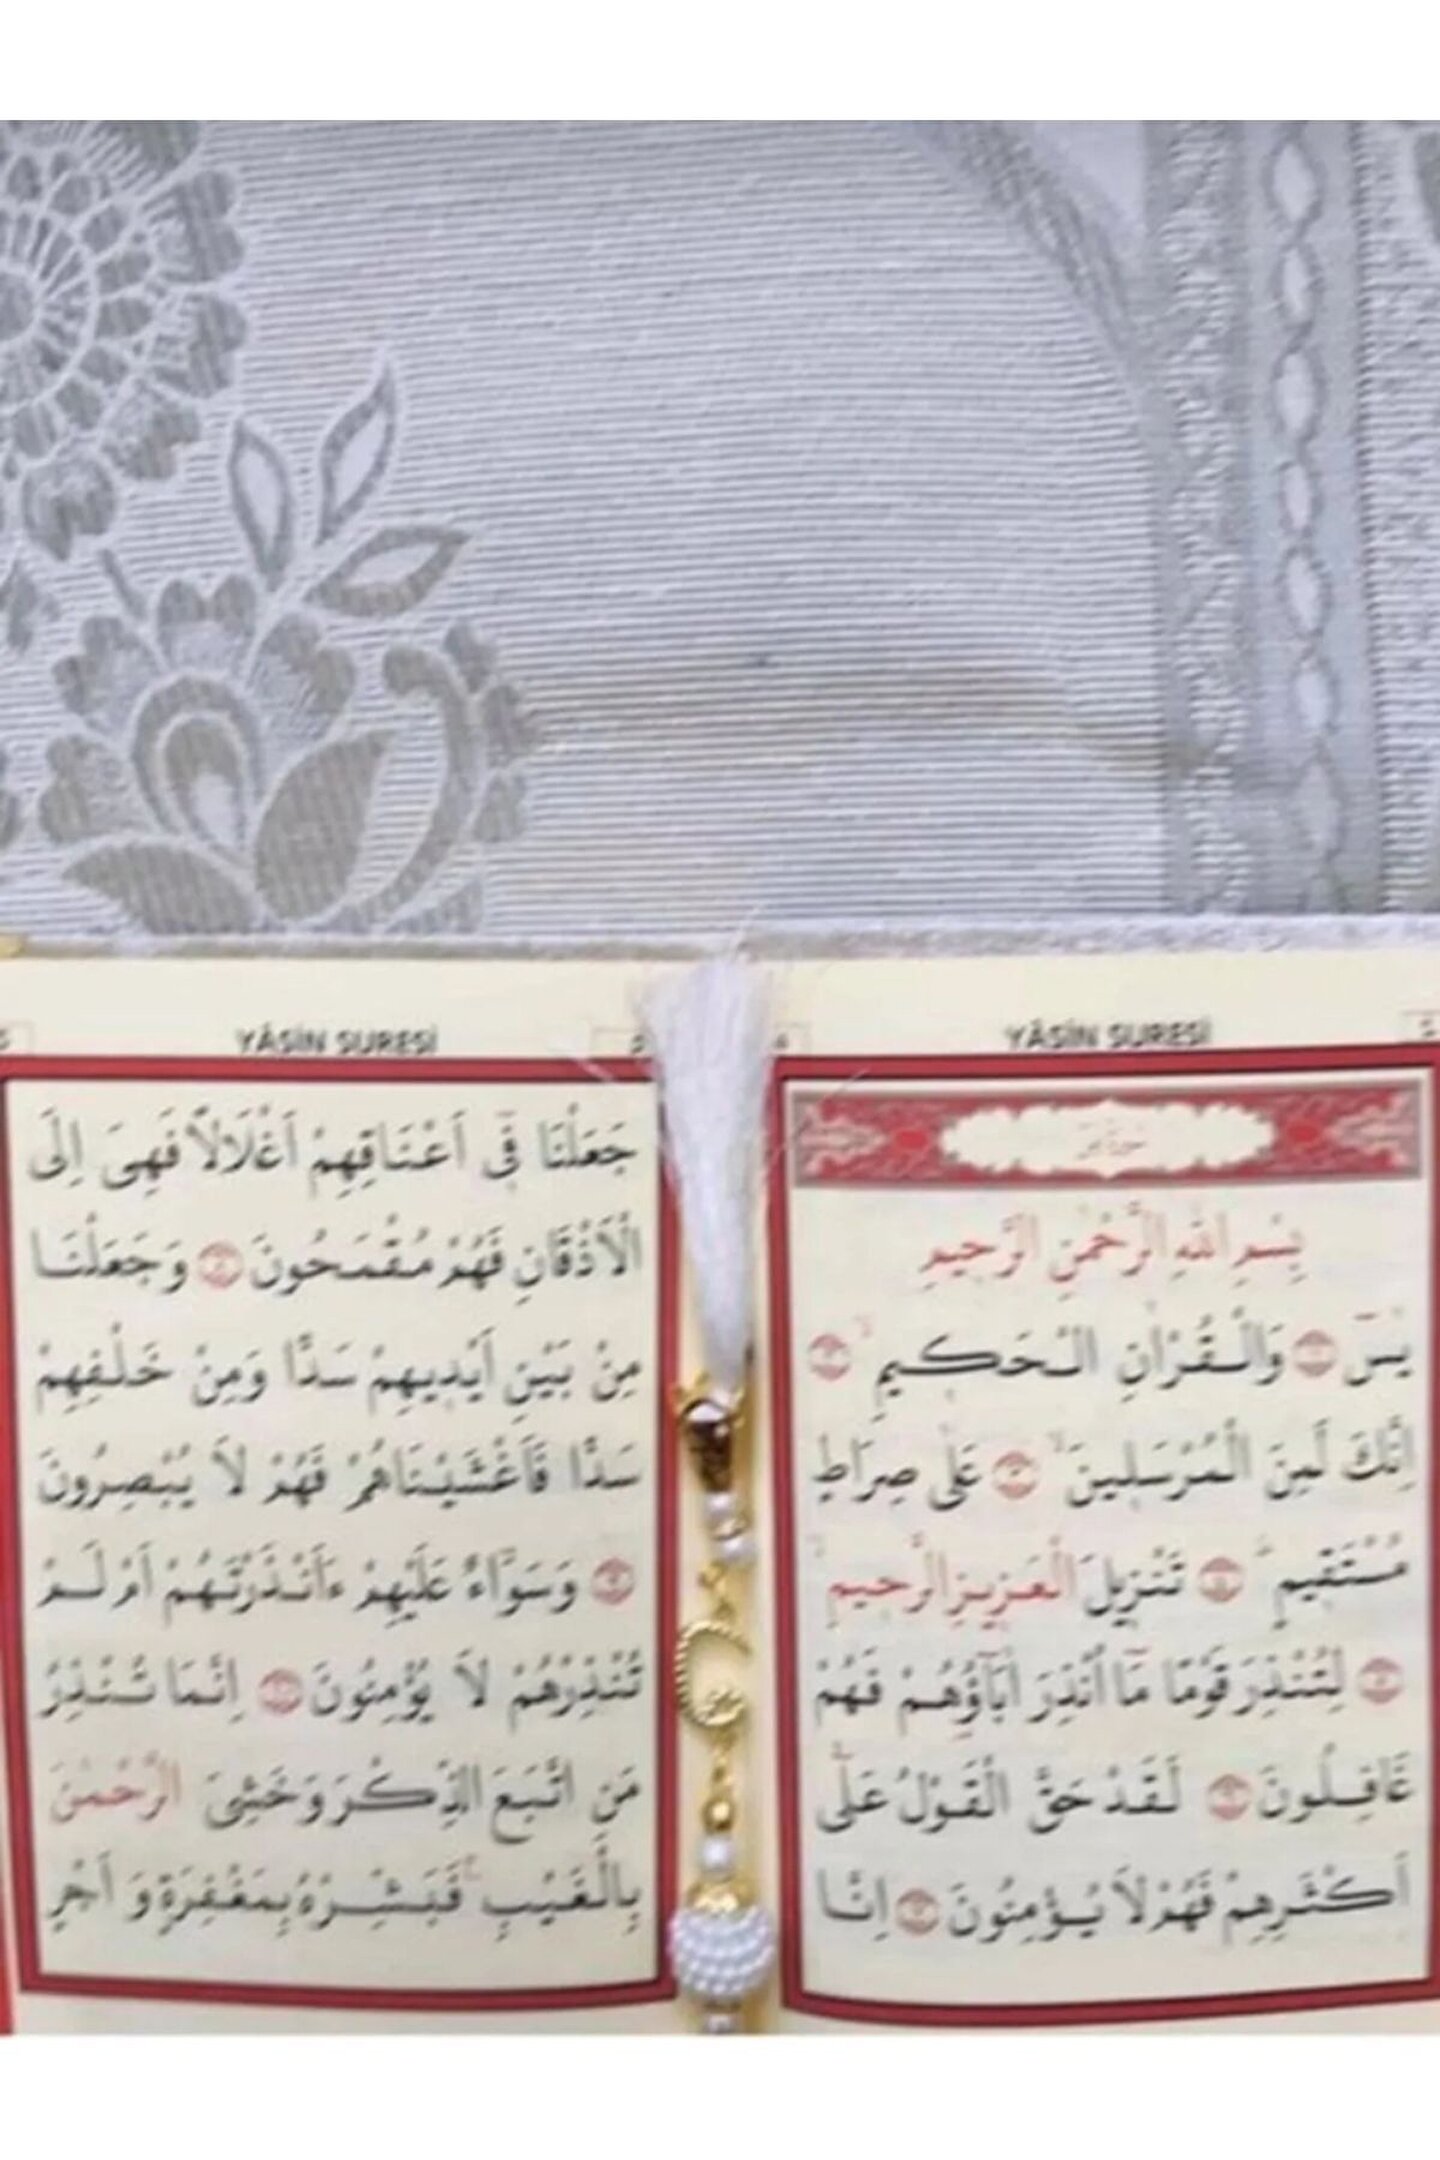 YÂSİN SURESİ
بِسْمِ اللّٰهِ الرَّحْمٰنِ الرَّحِيمِ
يٰسٓ وَالْقُرْاٰنِ الْحَكِيمِۙ
اِنَّكَ لَمِنَ الْمُرْسَلِينَۙ عَلٰى صِرَاطٍ
مُسْتَقِيمٍۜ تَنْزِيلَ الْعَزِيزِ الرَّحِيمِۙ
لِتُنْذِرَ قَوْمًا مَٓا اُنْذِرَ اٰبَٓاؤُ۬هُمْ فَهُمْ
غَافِلُونَ لَقَدْ حَقَّ الْقَوْلُ عَلٰٓى
اَكْثَرِهِمْ فَهُمْ لَا يُؤْمِنُونَ اِنَّا
YÂSİN SURESİ
جَعَلْنَا فٖٓى اَعْنَاقِهِمْ اَغْلَالًا فَهِىَ اِلَى
الْاَذْقَانِ فَهُمْ مُقْمَحُونَ وَجَعَلْنَا
مِنْ بَيْنِ اَيْدِيهِمْ سَدًّا وَمِنْ خَلْفِهِمْ
سَدًّا فَاَغْشَيْنَاهُمْ فَهُمْ لَا يُبْصِرُونَ
وَسَوَٓاءٌ عَلَيْهِمْ ءَاَنْذَرْتَهُمْ اَمْ لَمْ
تُنْذِرْهُمْ لَا يُؤْمِنُونَ اِنَّمَا تُنْذِرُ
مَنِ اتَّبَعَ الذِّكْرَ وَخَشِىَ الرَّحْمٰنَ
بِالْغَيْبِۚ فَبَشِّرْهُ بِمَغْفِرَةٍ وَ اَجْرٍ